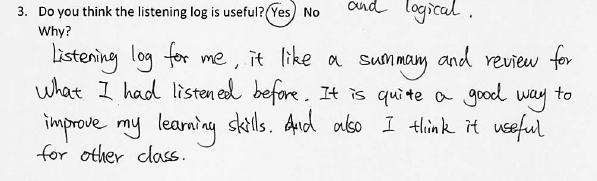 and logical.
3. Do you think the listening log is useful? Yes No
Why?
Listening log for me, it like a summary and review for
what I had listened before. It is quite a good way to
improve my learning skills. And also I think it useful
for other class.